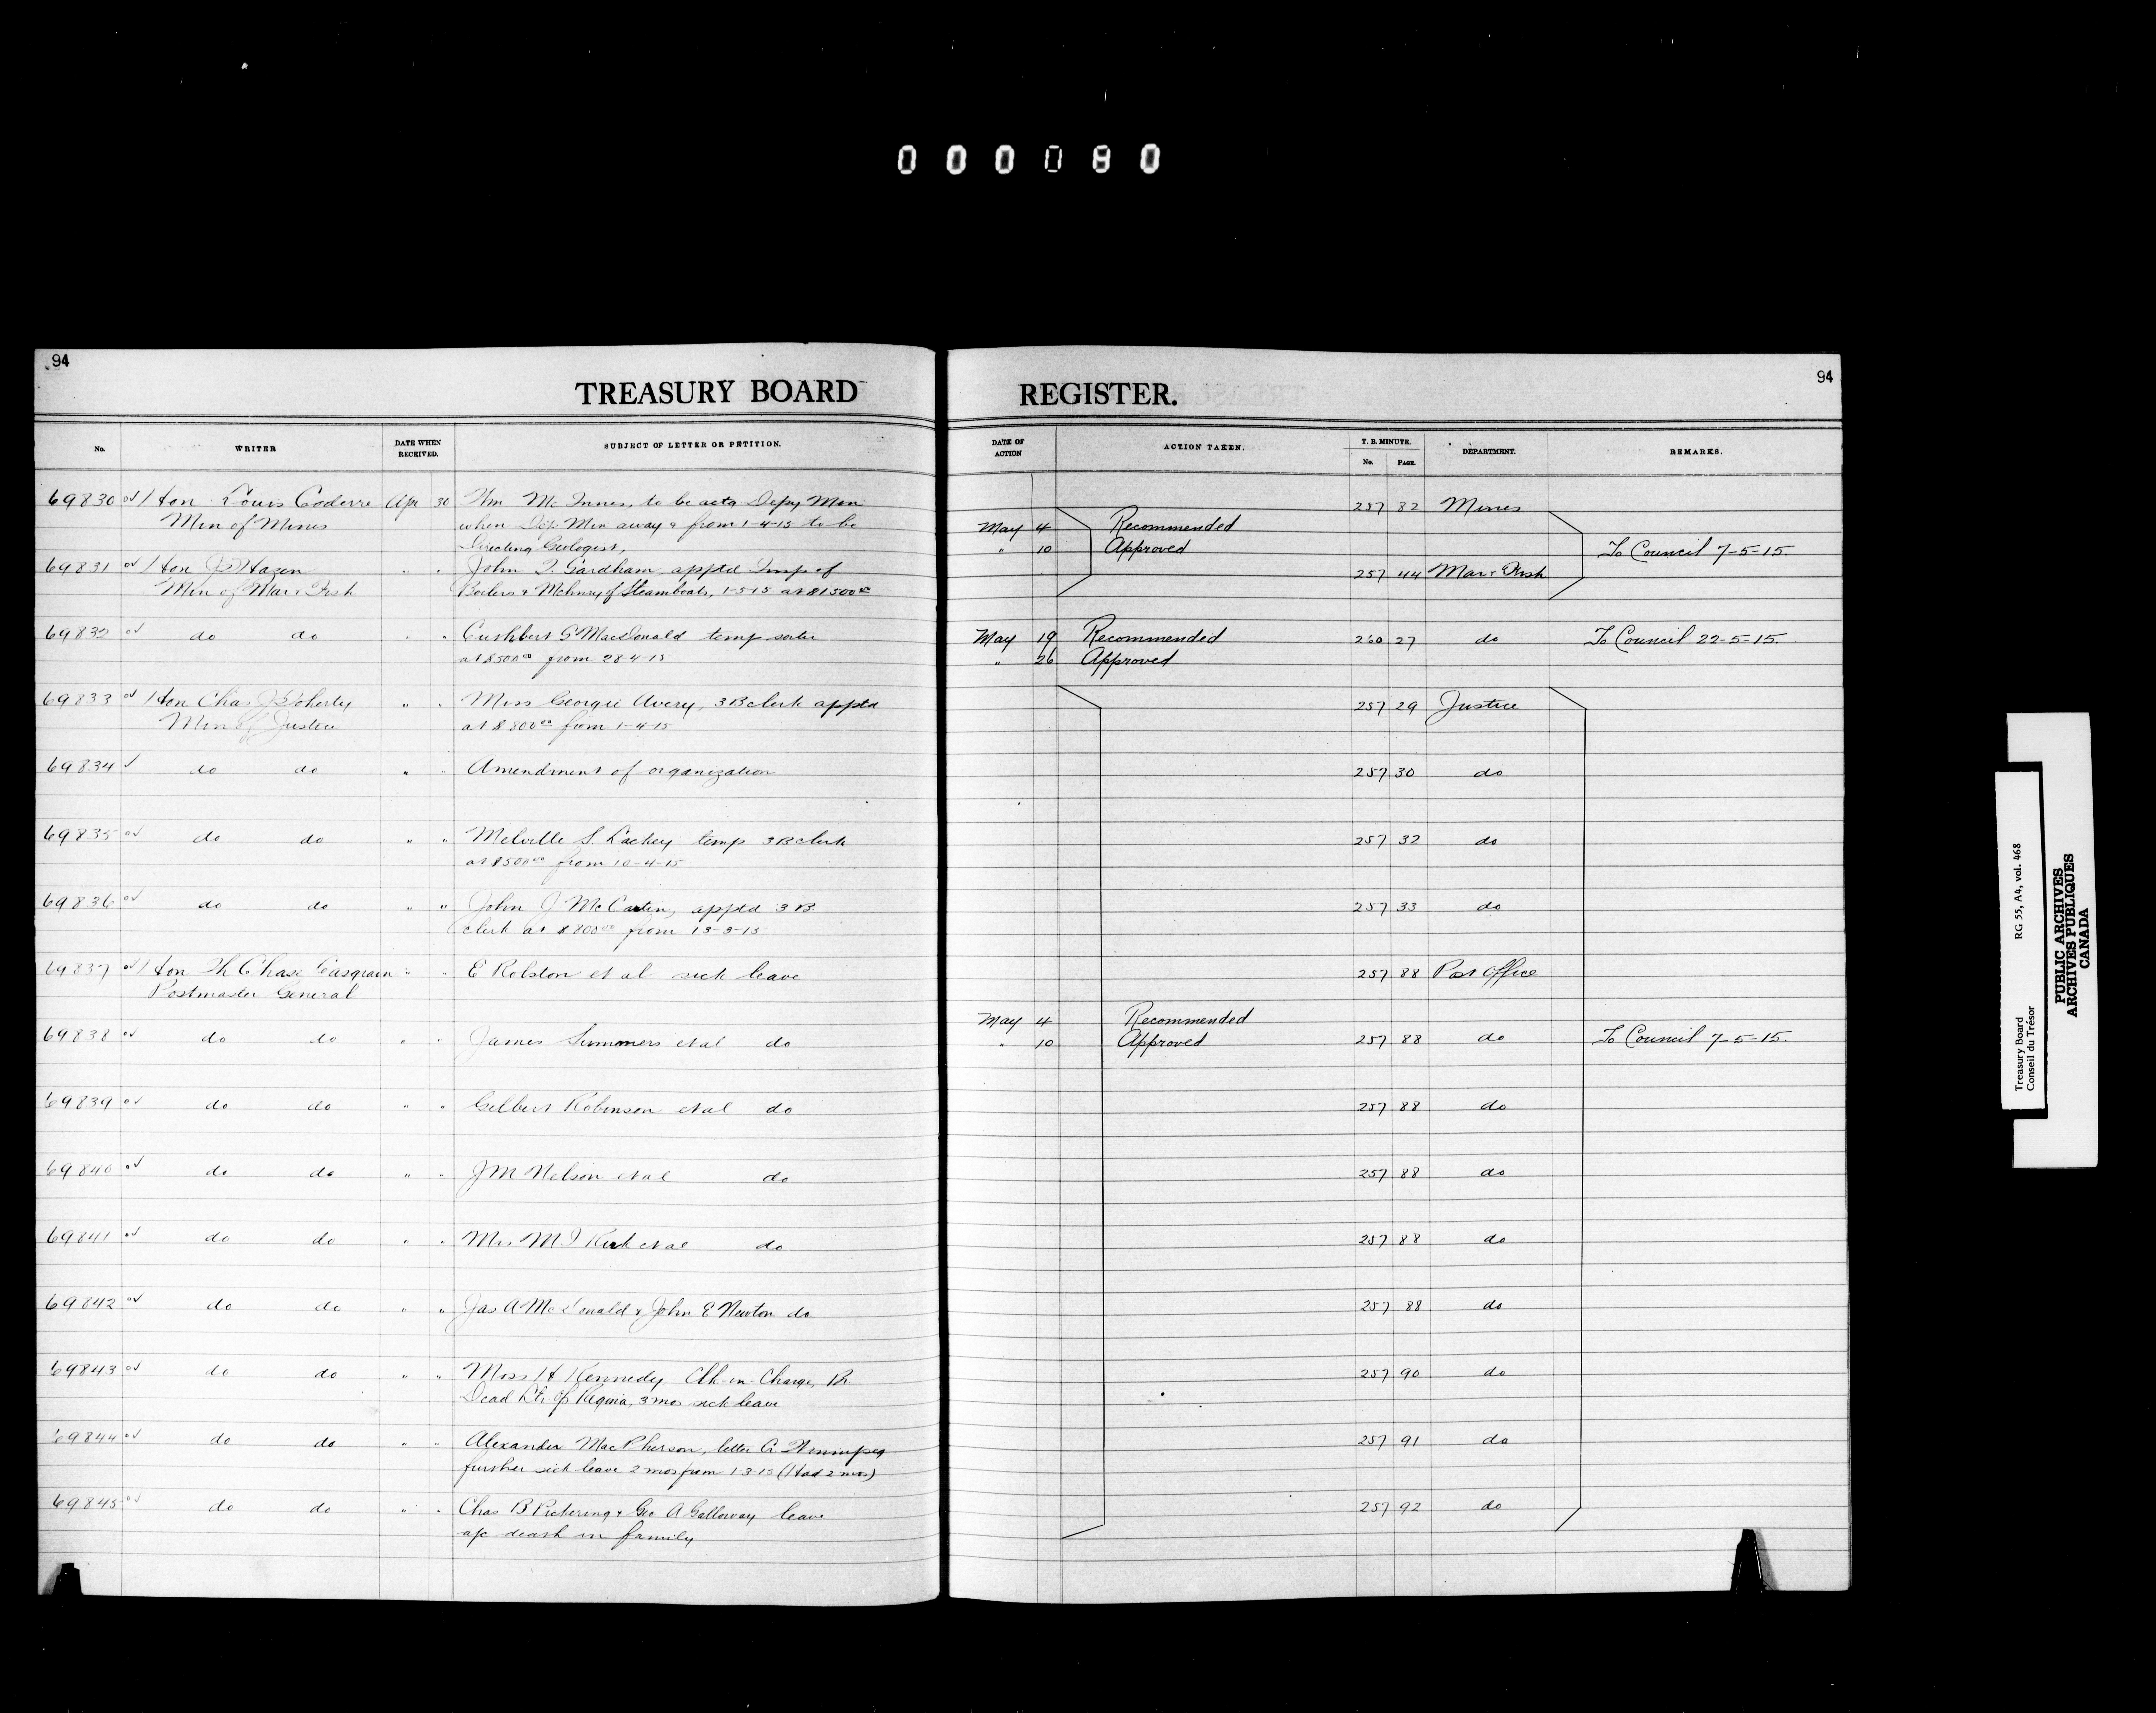 000080
94
TREASURY BOARD
No.
WRITER
DATE WHEN RECEIVED.
SUBJECT OF LETTER OR PETITION.
69830 Hon Louis Coderre Apr 30 Wm McInnes, to be actg Depy Min
Min of Mines when Dep Min away & from 1-4-15 to be
Directing Geologist,
69831 Hon J D Hazen " " John T. Gardham apptd Insp of
Min of Mar & Fish Boilers & Mchnry of Steamboats, 1-5-15 at $1500 00
69832 do do " " Cuthbert G MacDonald temp sorter
at $500 00 from 28-4-15
69833 Hon Chas J Doherty " " Miss Georgie Avery, 3B clerk apptd
Min of Justice at $800 00 from 1-4-15
69834 do do " " Amendment of organization
69835 do do " " Melville S. Lackey temp 3B clerk
at $500 00 from 10-4-15
69836 do do " " John J McCarten, apptd 3B.
clerk at $800 00 from 13-3-15
69837 Hon Th Chase Casgrain " " E Rolston et al sick leave
Postmaster General
69838 do do " " James Summers et al do
69839 do do " " Gilbert Robinson et al do
69840 do do " " J M Nelson et al do
69841 do do " " M J Kirk et al do
69842 do do " " Jas A McDonald & John E Newton do
69843 do do " " Miss H Kennedy Clk-in-Charge, Br
Dead Ltr. Of Regina, 3 mos sick leave
69844 do do " " Alexander MacPherson, letter Cr Winnipeg
further sick leave 2 mos from 1-3-15 (Had 2 mos)
69845 do do " " Chas B Pickering & Geo A Galloway leave
a/c death in family
94
REGISTER.
DATE OF ACTION
ACTION TAKEN.
T. B. MINUTE.
No. PAGE.
DEPARTMENT.
REMARKS.
257 82 Mines
May 4 Recommended
" 10 Approved To Council 7-5-15.
257 44 Mar & Fish
May 19 Recommended 260 27 do To Council 22-5-15.
" 26 Approved
257 29 Justice
257 30 do
257 32 do
257 33 do
257 88 Post Office
May 4 Recommended
" 10 Approved 257 88 do To Council 7-5-15.
257 88 do
257 88 do
257 88 do
257 88 do
257 90 do
257 91 do
257 92 do
Treasury Board RG 55, A4, vol. 468
Conseil du Trésor
PUBLIC ARCHIVES
ARCHIVES PUBLIQUES
CANADA